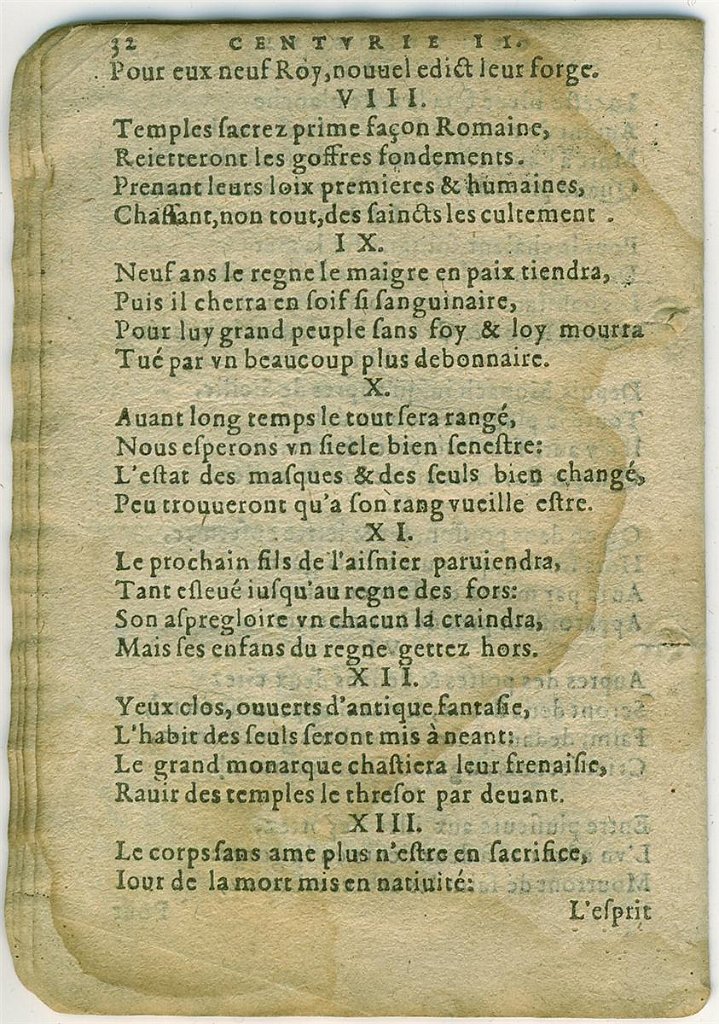 32 CENTVRIE II.
Pour eux neuf Roy, nouuel edict leur forge.
VIII.
Temples ſacrez prime façon Romaine,
Reietteront les goffres fondements.
Prenant leurs loix premieres & humaines,
Chaſſant, non tout, des ſaincts les cultement .
IX.
Neuf ans le regne le maigre en paix tiendra,
Puis il cherra en ſoif ſi ſanguinaire,
Pour luy grand peuple ſans foy & loy mourra
Tué par vn beaucoup plus debonnaire.
X.
Auant long temps le tout ſera rangé,
Nous eſperons vn ſiecle bien ſeneſtre:
L'eſtat des maſques & des ſeuls bien changé,
Peu trouueront qu'a ſon rang vueille eſtre.
XI.
Le prochain fils de l'aiſnier paruiendra,
Tant eſleué iuſqu'au regne des fors:
Son aſpregloire vn chacun la craindra,
Mais ſes enfans du regne gettez hors.
XII.
Yeux clos, ouuerts d'antique fantaſie,
L'habit des ſeuls ſeront mis à neant:
Le grand monarque chaſtiera leur frenaiſie,
Rauir des temples le threſor par deuant.
XIII.
Le corps ſans ame plus n'eſtre en ſacrifice,
Iour de la mort mis en natiuité:
L'eſprit